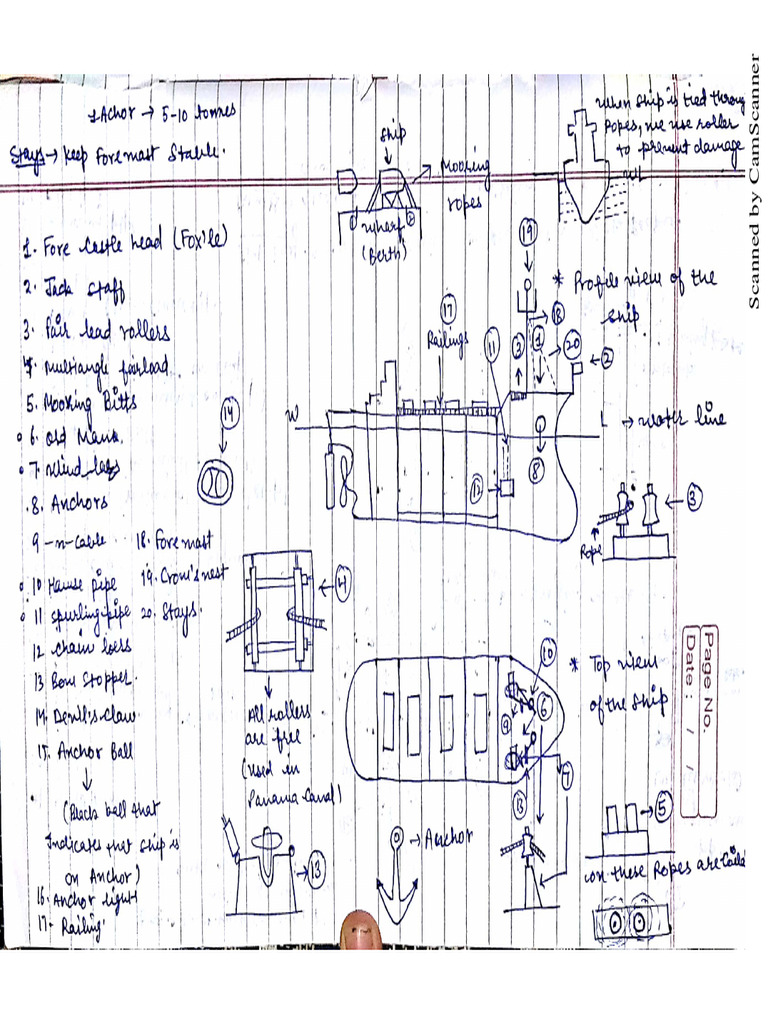 1 Achor → 5-10 tonnes
Stays → Keep Foremast Stable.
When Ship is tied throug
Ropes, we use roller
to prevent damage
WL
Ship
Mooking
ropes
Wharf
(Berth)
1. Fore castle head (Fox'le)
2. Jack staff
3. Fair lead rollers
4. multiangle fairlead
5. Mooking Bitts
6. Old Mans
7.
8. Anchors
9 -n-cable
10 Hause pipe
11 spurling pipe
12 chain locss
13 Bow Stopper.
14. Devil's Claw
15. Anchor Ball
(Black ball that
Indicates that ship is
on Anchor)
16. Anchor light
17. Railing
18. Foremast
19. Crow's nest
20. Stays.
* Profile view of the
ship
19
17
Railings
11
2
1
18
20
2
W
L → water line
8
12
14
3
Rope
4
All rollers
are free
(Used in
Panama Canal)
* Top view
of the Ship
10
9
6
7
13
13
→ Anchor
5
on these Ropes are Coile
Page No.
Date: / /
Scanned by CamScanner